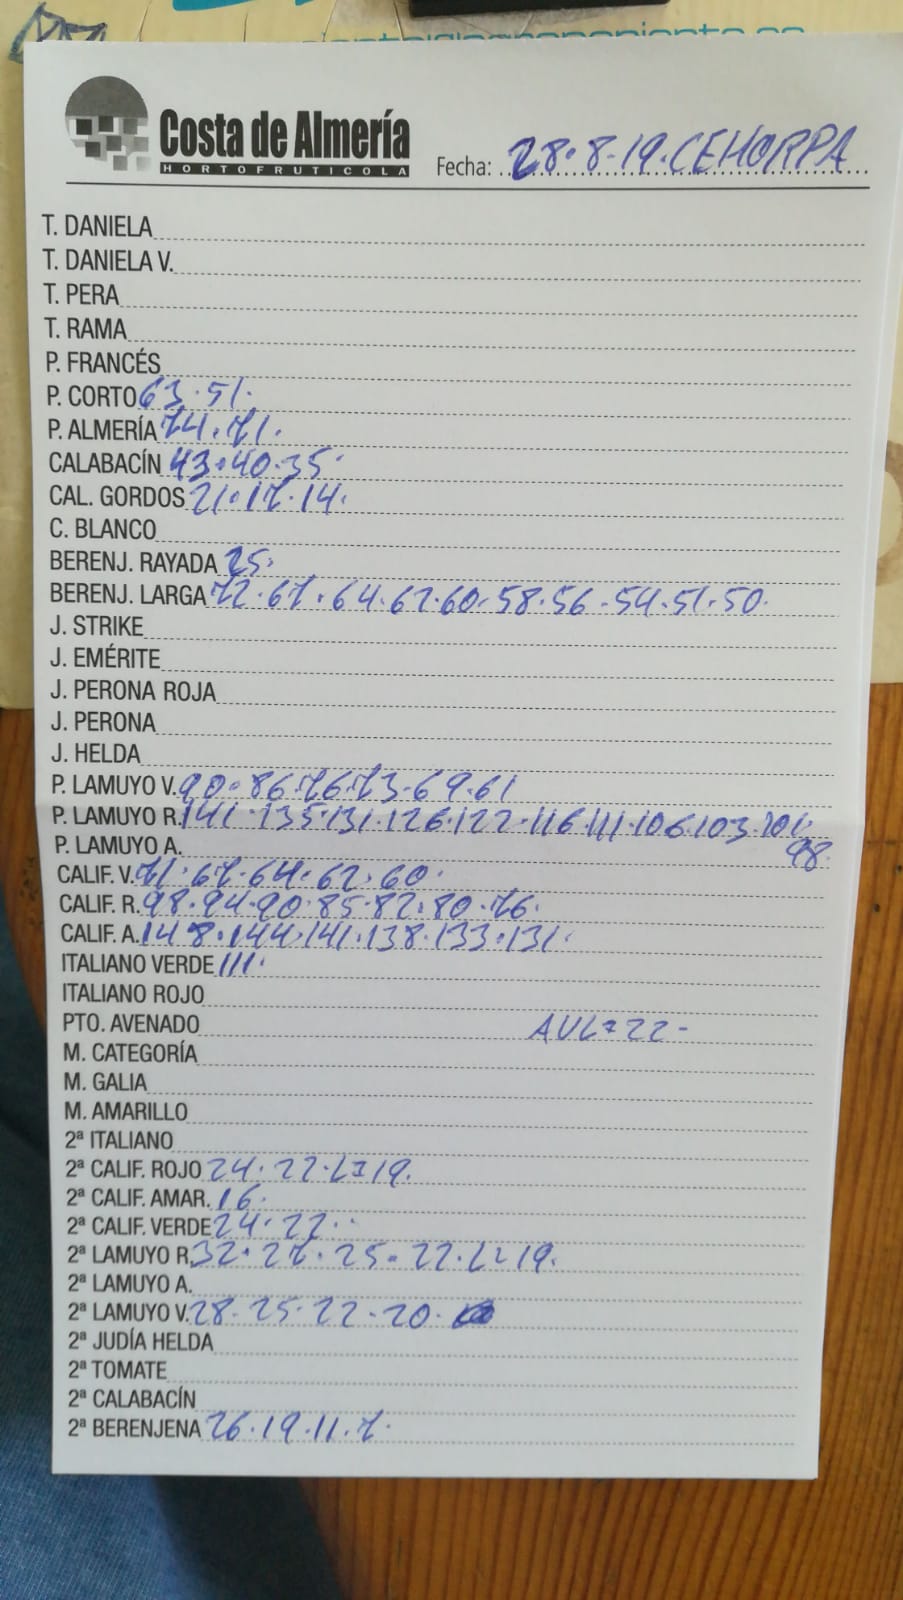 Costa de Almería
HORTOFRUTICOLA
Fecha: 28.8.19.CEHORPA
T. DANIELA
T. DANIELA V.
T. PERA
T. RAMA
P. FRANCÉS
P. CORTO 63.51.
P. ALMERÍA 74.71.
CALABACÍN 43.40.35.
CAL. GORDOS 21.17.14.
C. BLANCO
BERENJ. RAYADA 25.
BERENJ. LARGA 72.67.64.62.60.58.56.54.51.50.
J. STRIKE
J. EMÉRITE
J. PERONA ROJA
J. PERONA
J. HELDA
P. LAMUYO V. 90.86.76.73.69.61
P. LAMUYO R. 141.135.131.126.122.116.111.106.103.101.
P. LAMUYO A. 98.
CALIF. V. 71.67.64.62.60.
CALIF. R. 98.94.90.85.82.80.76.
CALIF. A. 148.144.141.138.133.131.
ITALIANO VERDE 111.
ITALIANO ROJO
PTO. AVENADO AVL=22-
M. CATEGORÍA
M. GALIA
M. AMARILLO
2ª ITALIANO
2ª CALIF. ROJO 24.22.L=19.
2ª CALIF. AMAR. 16.
2ª CALIF. VERDE 24.22..
2ª LAMUYO R. 32.27.25.22.L=19.
2ª LAMUYO A.
2ª LAMUYO V. 28.25.22.20.
2ª JUDÍA HELDA
2ª TOMATE
2ª CALABACÍN
2ª BERENJENA 26.19.11.7.